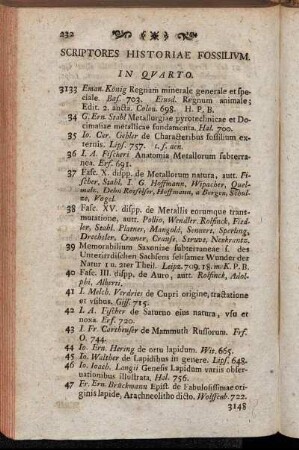 232
SCRIPTORES HISTORIAE FOSSILIVM.
IN QVARTO.
3133 Eman. König Regnum minerale generale et spe-
ciale. Bas. 703. Eiusd. Regnum animale;
Edit. 2. aucta. Colon. 698. H. P. B.
34 G. Ern. Stahl Metallurgiae pyrotechnicae et Do-
cimasiae metallicae fundamenta. Hal. 700.
35 Io. Car. Gehler de Characteribus fossilium ex-
ternis. Lips. 757. i. f. aen.
36 I. A. Fischers Anatomia Metallorum subterra-
nea. Erf. 691.
37 Fasc. X. dispp. de Metallorum natura, autt. Fi-
scher, Stahl, I. G. Hoffmann, Wipacher, Quel-
malz, Dehn Rotfelser, Hoffmann, a Bergen, Schul-
ze, Vogel.
38 Fasc. XV. dispp. de Metallis eorumque trans-
mutatione, autt. Pollio, Wendler, Rolfinck, Fied-
ler, Stahl, Platner, Mangold, Sennert, Sperling,
Drechsler, Cramer, Crause, Struve, Neukrantz.
39 Memorabilium Saxoniae subterraneae i. des
Unterirrdischen Sachsens seltsamer Wunder der
Natur 1 u. 2ter Theil. Leipz. 709. 18. m. K. P. B.
40 Fasc. III. dispp. de Auro, autt. Rolfinck, Adol-
phi, Alberti.
41 I. Melch. Verdries de Cupri origine, tractatione
et vsibus. Giss. 715.
42 I. A. Fischer de Saturno eius natura, vsu et
noxa. Erf. 720.
43 I. Fr. Cartheuser de Mammuth Russorum. Frf.
O. 744.
44 Io. Ern. Hering de ortu lapidum. Wit. 665.
45 Io. Walther de Lapidibus in genere. Lips. 648.
46 Io. Ioach. Langii Genesis Lapidum variis obser-
uationibus illustrata. Hal. 756.
47 Fr. Ern. Brückmann Epist. de Fabulosissimae ori-
ginis lapide, Arachneolitho dicto. Wolffenb. 722.
3148